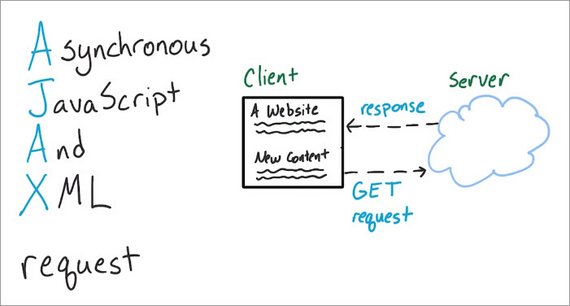 Asynchronous
JavaScript
And
XML
request
Client
A Website
New Content
response
GET
request
Server